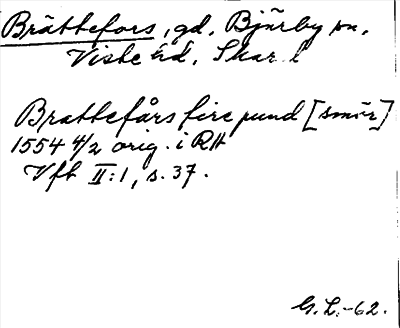 Brättefors, gd, Bjärby sn,
Viste hd, Skar l
Brattefårs fire pund [smör]
1554 4/2 orig. i RA
Vfh II:1, s. 37.
G.L.-62.